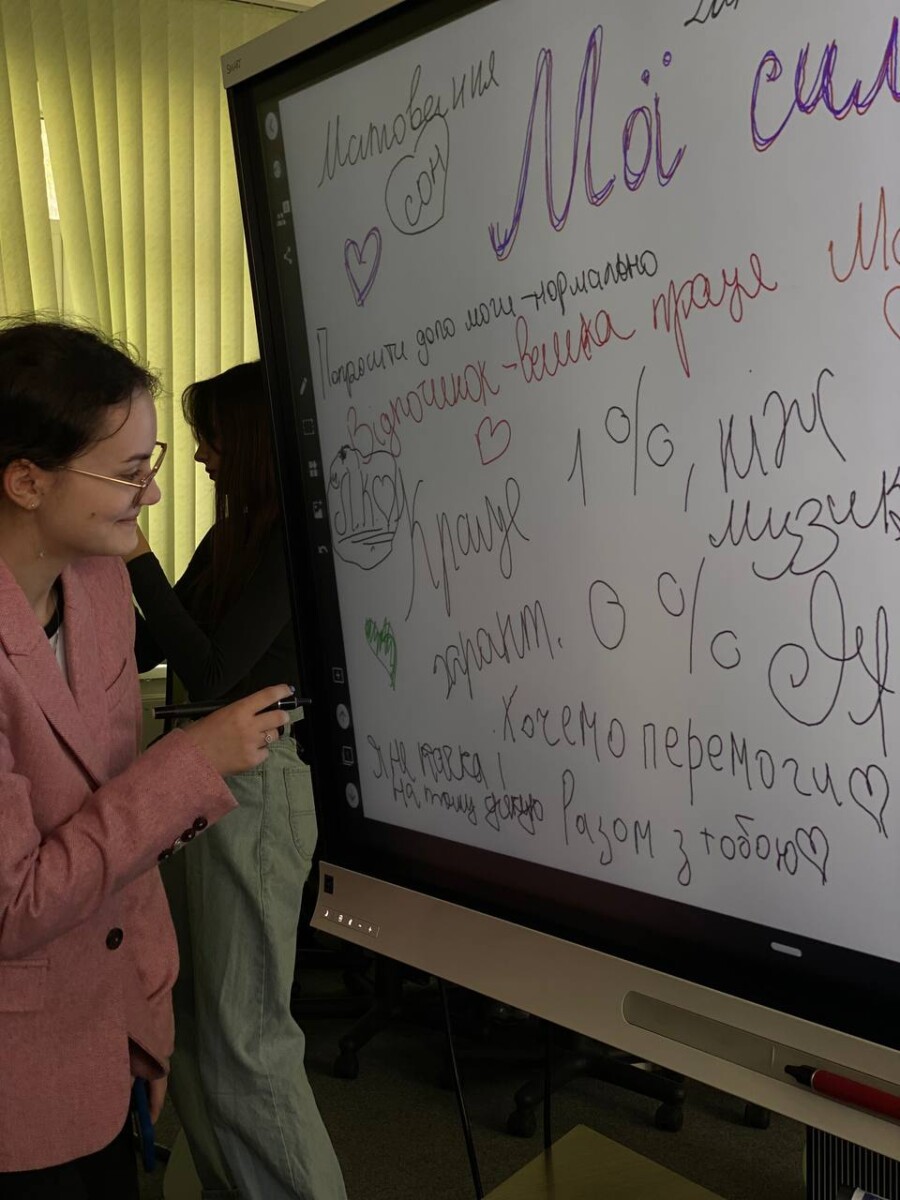 SMART
Мої сил
сон
Попросити допомоги - нормально
Відпочинок - велика праця
ПКО
Краще 1%, ніж
музик
гарант. 0%
Я
Хочемо перемоги
Я не тачка і
на тому дякую
Разом з тобою